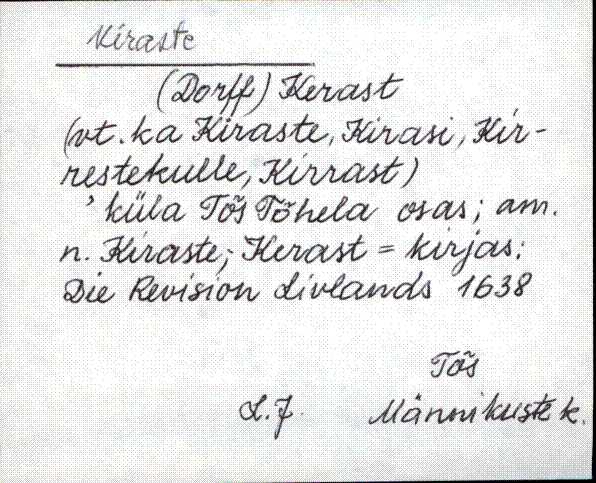 Kiraste
(Dorff) Kerast
(vt. ka Kiraste, Kirasi, Kir-
restekulle, Kirrast)
' küla Tõs Tõhela osas; am.
n. Kiraste; Kerast = kirjas:
Die Revision Livlands 1638
Tõs
L.J. Männikuste k.